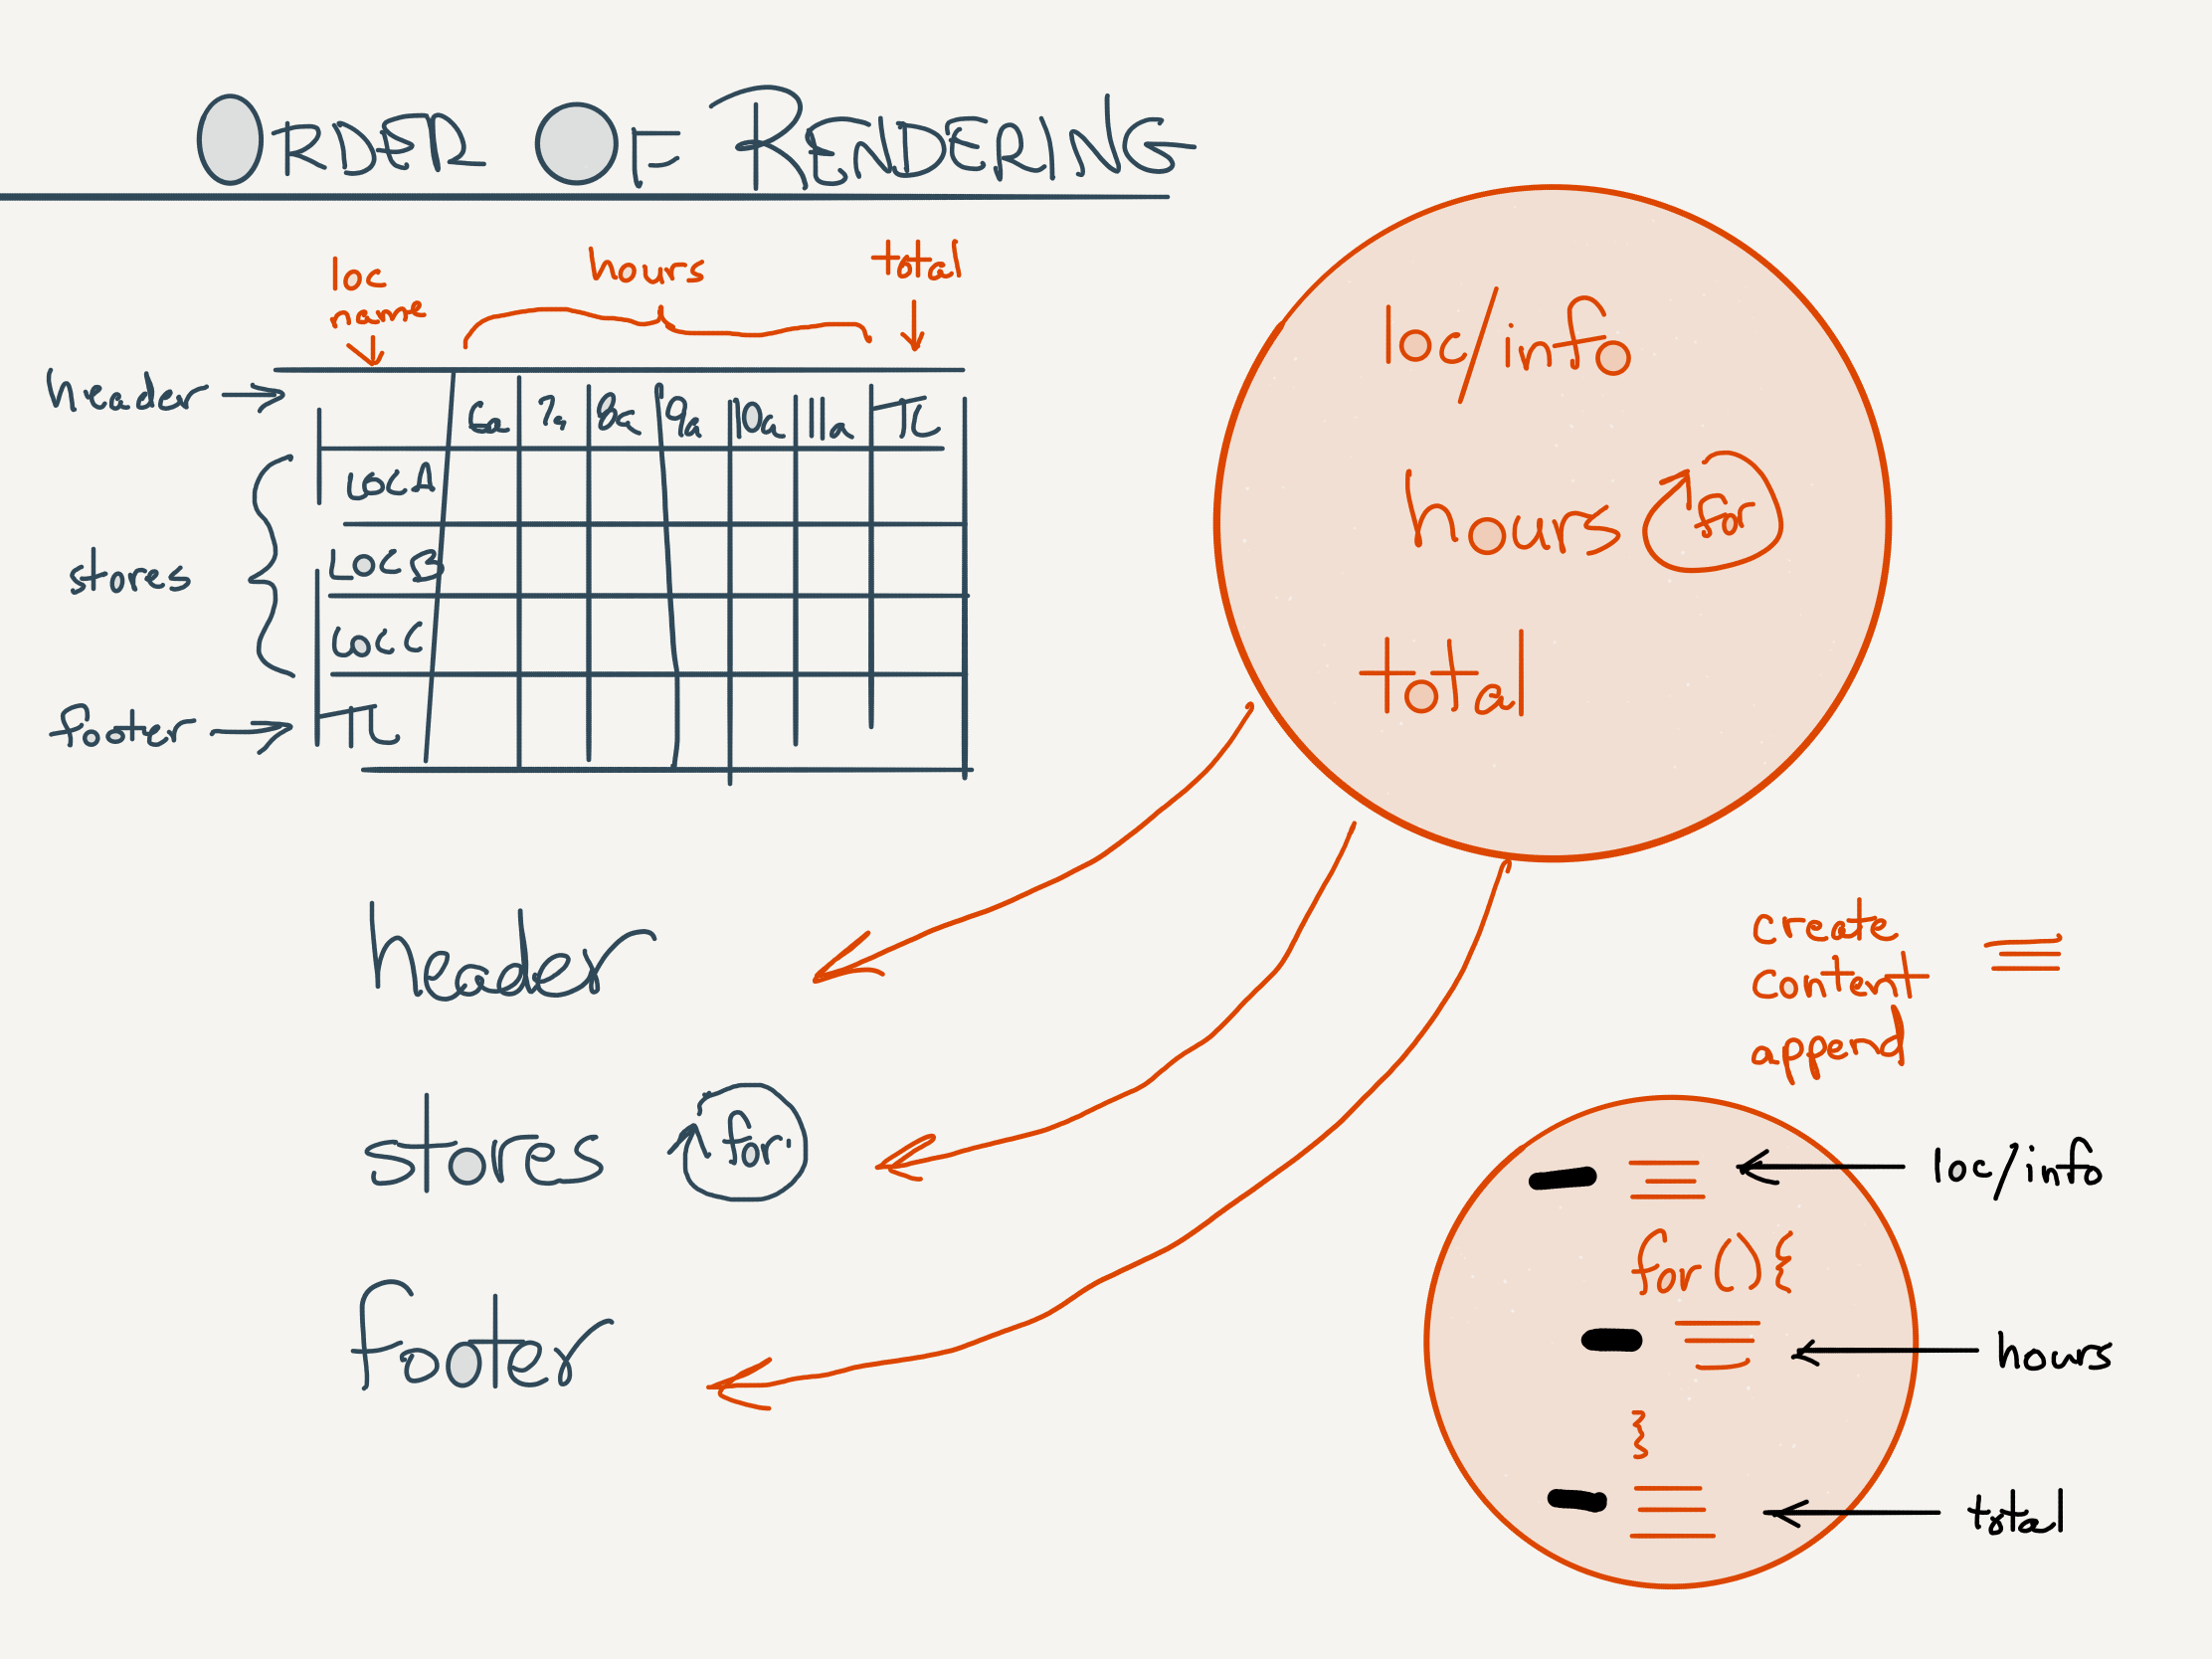 ORDER OF RENDERING
loc
name
hours
total
header
6a 7a 8a 9a 10a 11a TL
Loc A
Loc B
Loc C
TL
stores
footer
loc/info
hours for
total
header
stores for
footer
create
content
append
loc/info
for(){
hours
}
total